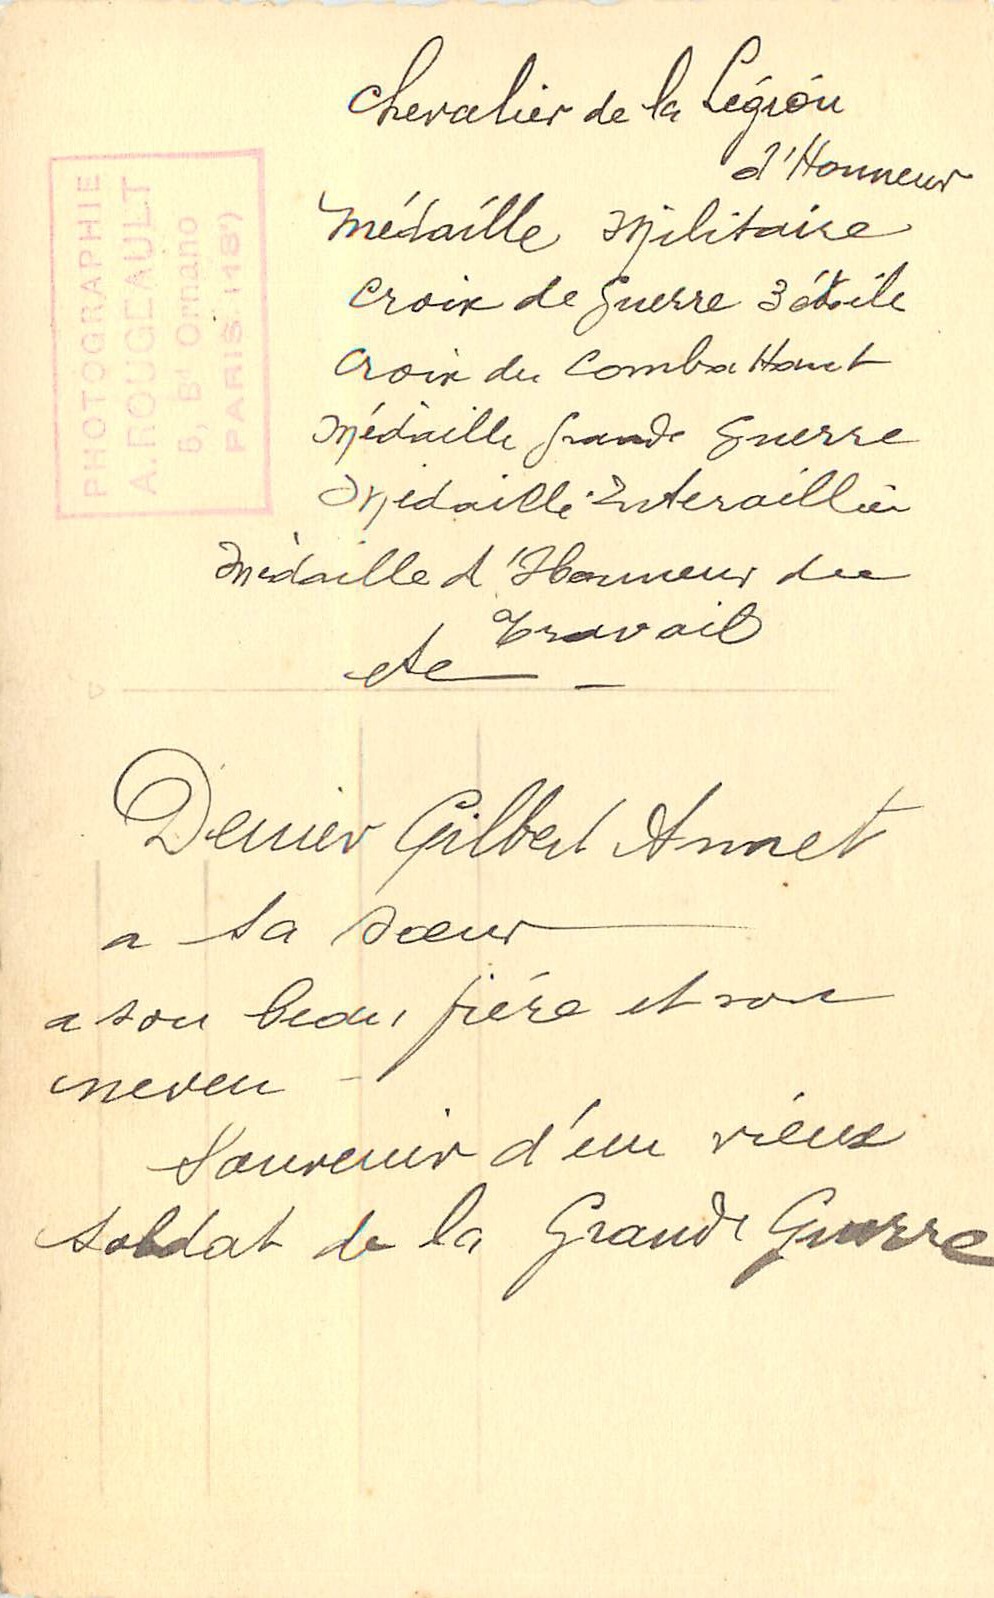 PHOTOGRAPHIE
A. ROUGEAULT
6, Bd Ornano
PARIS (18e)
Chevalier de la Légion
d'Honneur
Médaille Militaire
Croix de Guerre 3 étoile
Croix du Combattant
Médaille Grande Guerre
Médaille Interalliée
Médaille d'Honneur du
Travail
etc
Denier Gilbert Annet
a sa sœur
a son beau frére et son
neveu -
Souvenir d'un vieux
soldat de la Grande Guerre